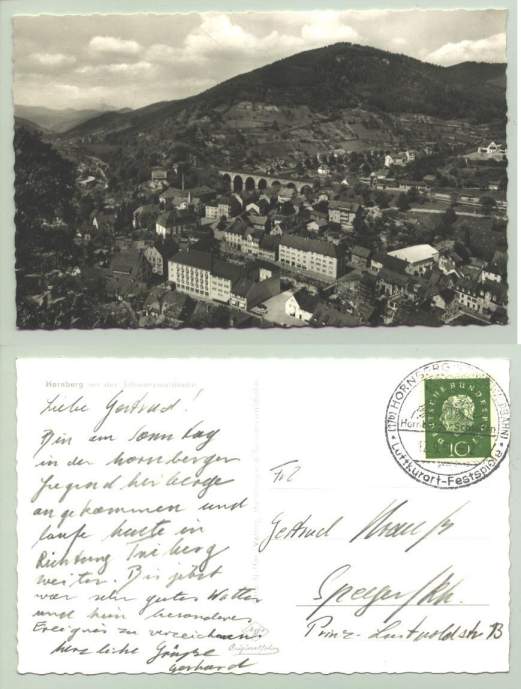 Hornberg an der Schwarzwaldbahn
Liebe Gertrud!
Bin am Sonntag
in der hornberger
Gegend herberge
angekommen und
laufe heute in
Richtung Triberg
weiter. Bis jetzt
war sehr gutes Wetter
und kein besonderes
Ereignis zu verzeichnen.
herzliche Grüße
Gerhard
(17b) HORNBERG
Hornberger Schießen
Luftkurort-Festspiele
DEUTSCHE BUNDESPOST
10
Frl
Gertrud Krauß
Speyer/Rh.
Prinz-Luitpoldstr 13
Originalfoto